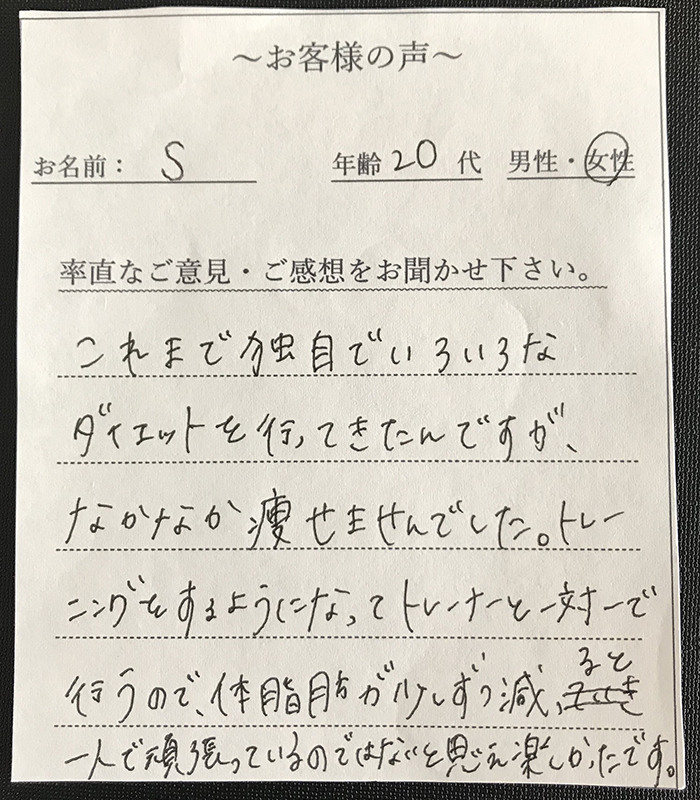 ～お客様の声～
お名前： S 年齢 20 代 男性・女性
率直なご意見・ご感想をお聞かせ下さい。
これまで独自でいろいろな
ダイエットを行ってきたんですが、
なかなか痩せませんでした。トレー
ニングをするようになってトレーナーと一対一で
行うので、体脂肪が少しずつ減
ると
一人で頑張っているのではないと思え楽しかったです。